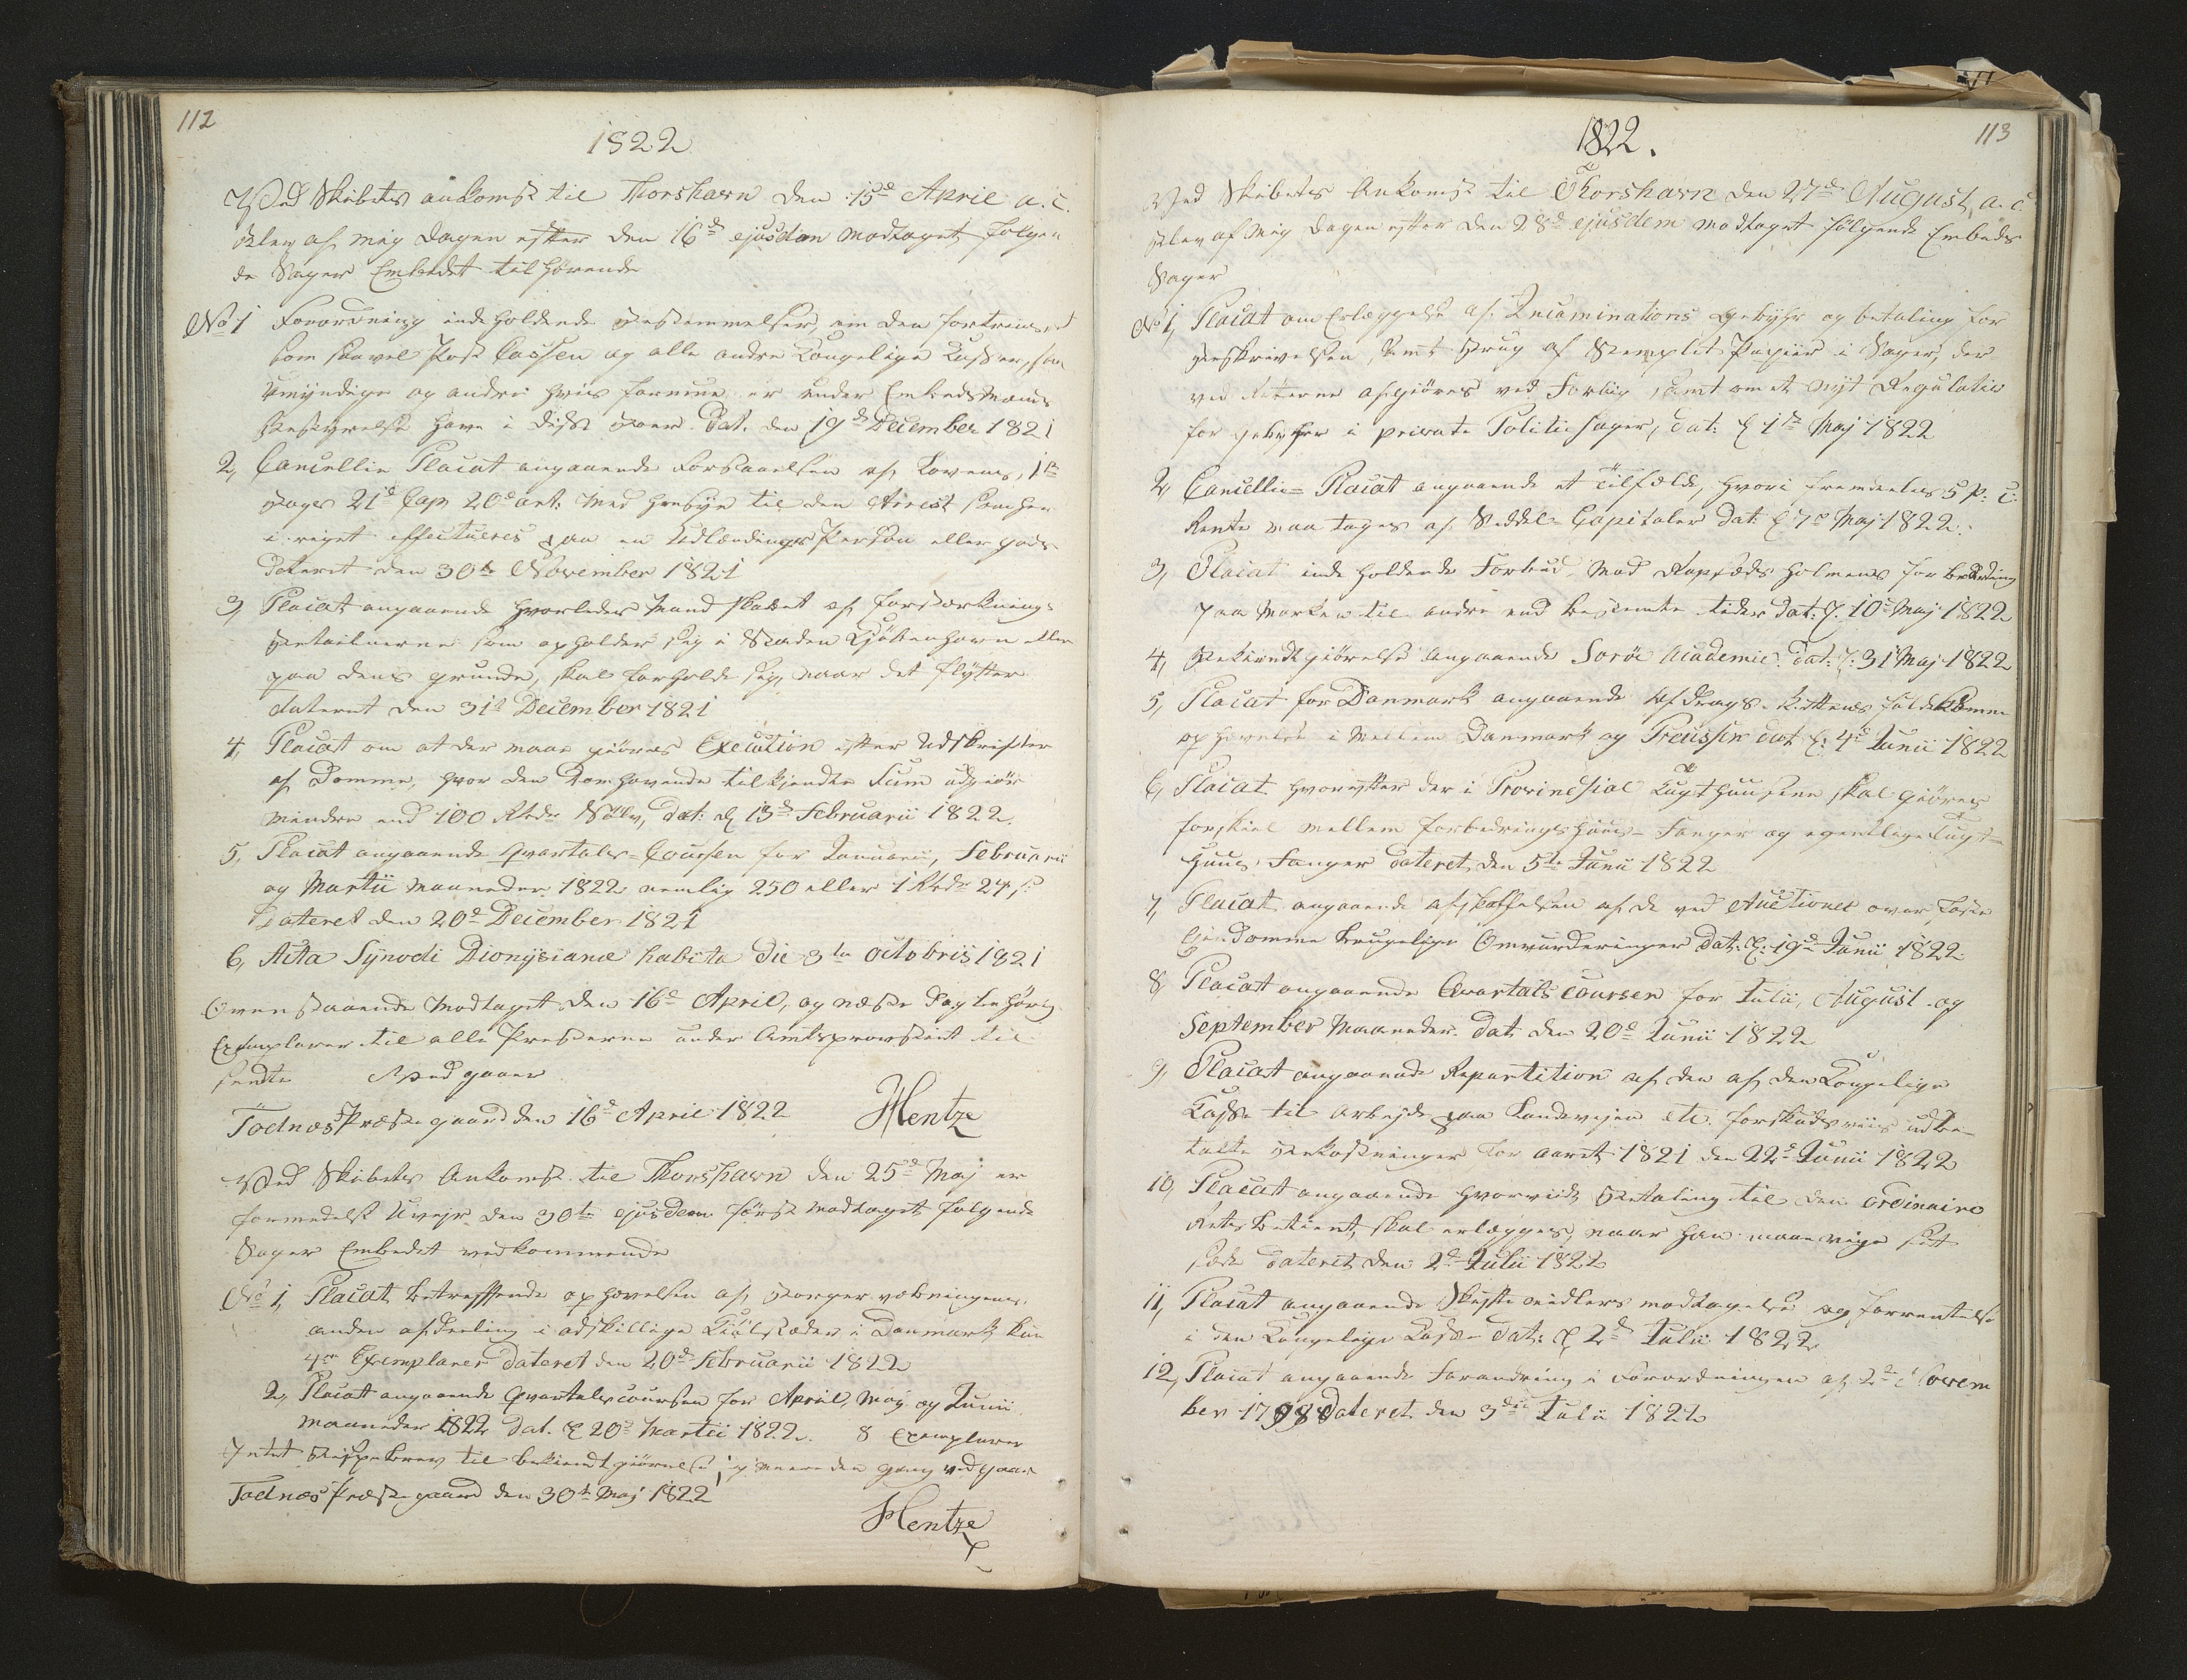 112
1822
Ved Skibets ankomst til Thorshavn den 15de April a. c.
blev af mig dagen efter den 16de ejusdem modtaget følgen
de Sager Embedet tilhørende
No 1 Forordning indeholdende Bestemmelser, om den fortrinsret
som saavel Post Cassen og alle andre Kongelige Kasser, som
Umyndige og andre hvis formue er under Embedsmænds
Bestyrelse have i disses Boer. Dat. den 19de December 1821
2, Cancellie Placat angaaende Forstaaelsen af Lovens, 1te
Bogs 21de Cap 20de art: med Hensyn til den Arrest som her
i riget effectueres paa en Udlændings Person eller gods
Dateret den 30te November 1821
3, Placat angaaende hvorledes Mandskabet af forstærknings
Bataillonerne som opholder sig i Staden Kjöbenhavn eller
paa dens grunde, skal forholde sig, naar det flytter
dateret den 31te December 1821
4, Placat om at der maae giöres Execution efter Udskrifter
af Domme, hvor den Domhavende tilkjendte Sum udgiör
mindre end 100 Rbdr Sölv, dat: d 13de Februarii 1822.
5, Placat angaaende Qvartals-Coursen for Januarii, Februarii
og Martii maaneder 1822 nemlig 250 eller 1 Rbdr 24 s
Dateret den 20de December 1821
6, Acta Synodi Dionysianæ habita die 3tia octobris 1821
Ovenstaaende modtaget den 16de April, og næste Dag behörig
Exemplarer til alle Præsterne under Amtsprovstiet til
sendte
Todnæs Præstegaard den 16de April 1822 JHentze
Ved Skibets Ankomst til Thorshavn den 25de Maj er
formedelst Uvejr den 30te ejusdem först modtaget følgende
Sager Embedet vedkommende
No 1, Placat betreffende ophævelsen af Borgervæbningens
anden afdeeling i adskillige Kiöbstæder i Danmark kun
4re Exemplarer dateret den 20de Februarii 1822
2, Placat angaaende Qvartalscoursen for April, Maj og Junii
maaneder 1822 dat. d 20de Martii 1822. 8 Exemplarer
Intet til bekiendtgiörelse denne gang
Todnæs Præstegaard den 30te Maj 1822
JHentze
113
1822.
Ved Skibets Ankomst til Thorshavn den 27de August, a. c.
blev af mig dagen efter den 28de ejusdem modtaget følgende Embeds
Sager
No 1, Placat om Erlæggelse af Incaminations Gebyhr og betaling for
Beskrivelsen, samt Brug af Stemplet Papiir i Sager, der
ved Retterne afgiöres ved Forlig, samt om et nyt Regulativ
for gebyhr i private Politie sager, dat: d 1te Maj 1822
2, Cancellie-Placat angaaende et Tilfælde, hvori fremdeeles 5 p: c:
Rente maa tages af Seddel-Capitaler dat: d 7de Maj 1822.
3, Placat indeholdende Forbud mod Rapsæds Halmens forbrænding
paa Marken til andre end bestemte tider dat: d. 10de Maj 1822
4, Bekiendtgiörelse angaaende Soröe Academie. dat: d: 31 Maj 1822
5, Placat for Danmark angaaende Afdrags-Rettens fuldkomne
ophævelse imellem Danmark og Preussen dat d: 4de Junii 1822
6, Placat hvorefter der i Provincial Tugthuusene skal giöres
forskiel mellem Forbedringshuus-Fanger og egentlige Tugt-
huus Fanger dateret den 5te Junii 1822
7, Placat angaaende afskaffelsen af de ved Auctioner over faste
Eiendomme brugelige Omvurderinger dat: d: 19de Junii 1822
8, Placat angaaende Qvartals coursen for Julii, August og
September Maaneder. dat den 20de Junii 1822
9, Placat angaaende Repartition af den af den Kongelige
Kasse til arbejde paa Landevejen etc. forskudsviis udbe-
talte Bekostninger for aaret 1821 den 22de Junii 1822
10, Placat angaaende hvorvidt Betaling til den ordinaire
Retsbetient, skal erlægges, naar han maae vige sit
sæde dateret den 2de Julii 1822
11, Placat angaaende Skifte midlers modtagelse og forrentelse
i den Kongelige Kasse dat: d 2de Julii 1822
12, Placat angaaende forandring i Forordningen af 2de Novem
ber 1798 dateret den 3die Julii 1822